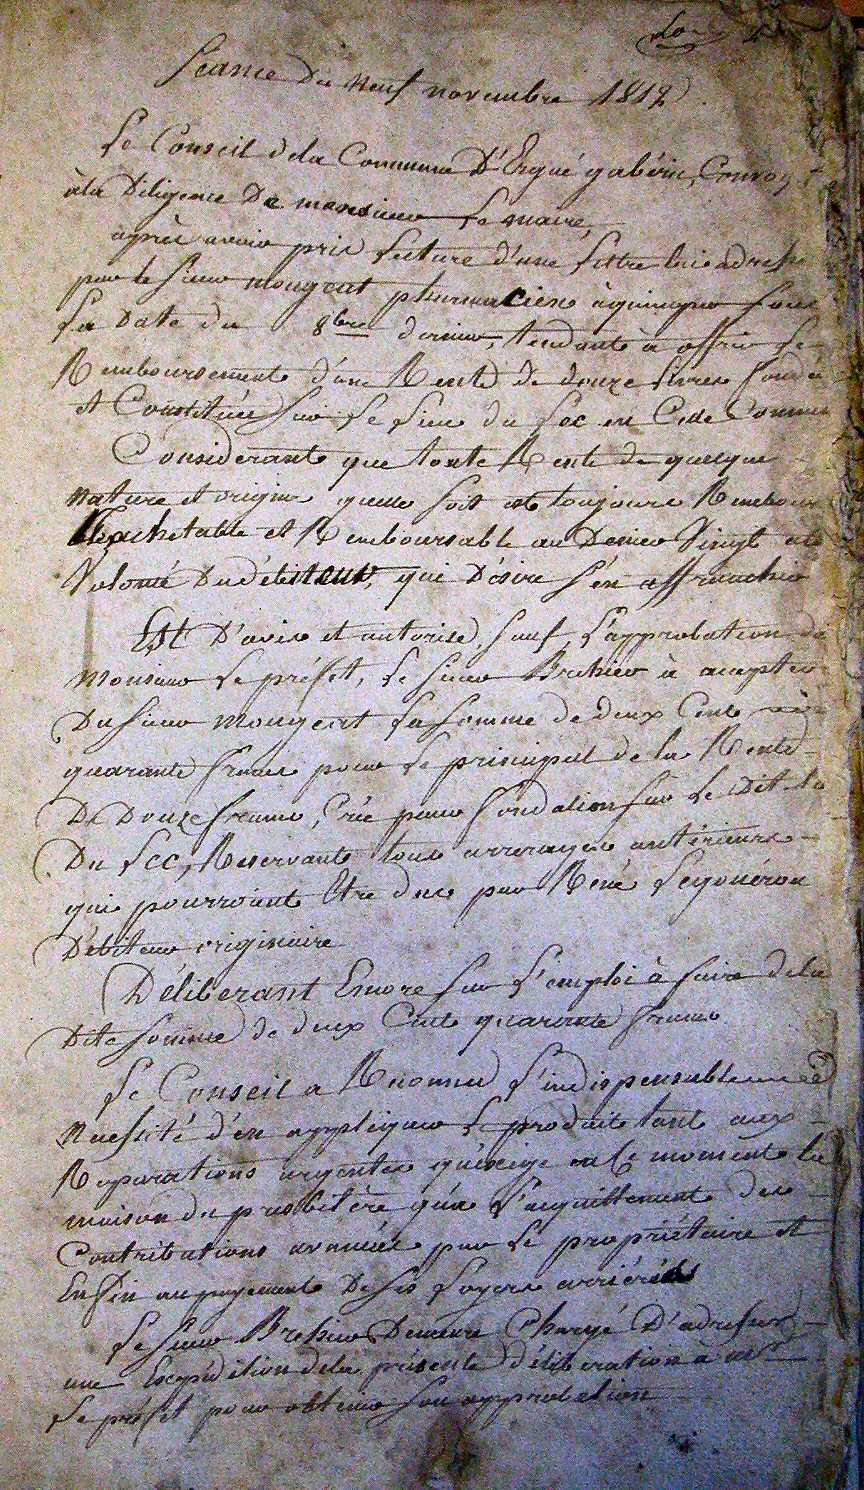 Séance du neuf novembre 1812
Le Conseil dela Commune D'Ergué gabéric, Convoq
àla Diligence De monsieur Le maire,
après avoir pris Lecture d'une Lettre lui adressé
par le Sieur mougeat pharmacien à quimper sous
La Date du 8bre dernier, tendante à offrir Le
Remboursement d'une Rente de douze Livres fondée
et Constituée sur Le Lieu du Lec en Cette Commune
Considérant que toute Rente de quelque
nature et origine quelle soit est toujours Rembour
Rachetable et Remboursable au Denier Vingt au
Volonté Du débiteur, qui Désire S'en affranchir
Est D'avis et autorise, sauf L'approbation de
monsieur Le préfet, Le Sieur Brehier à accepter
Du Sieur mougeat La somme de deux Cent
quarante francs pour Le principal de la Rente
De Douze francs, Créé pour fondation sur Le Dit
Du Lec, Réservant tous arrerages antérieurs
qui pourroient Etre dus par René Legouéron
Débiteur originaire
Déliberant Encore sur L'emploi à faire dela
Dite Somme de deux Cent quarante francs
Le Conseil a Reconnu L'indispensable
nécessité d'en appliquer Le produit tant aux
Réparations urgentes qu'exige en Ce moment la
maison du presbitère qu'a L'acquittement des
Contributions avancées par Le propriétaire et
Enfin au payement De ses Loyers arriérés
Le Sieur Brehier Demeure Chargé D'adresser
une Expédition dela présente déliberation a mr
Le préfet pour obtenir Son approbation